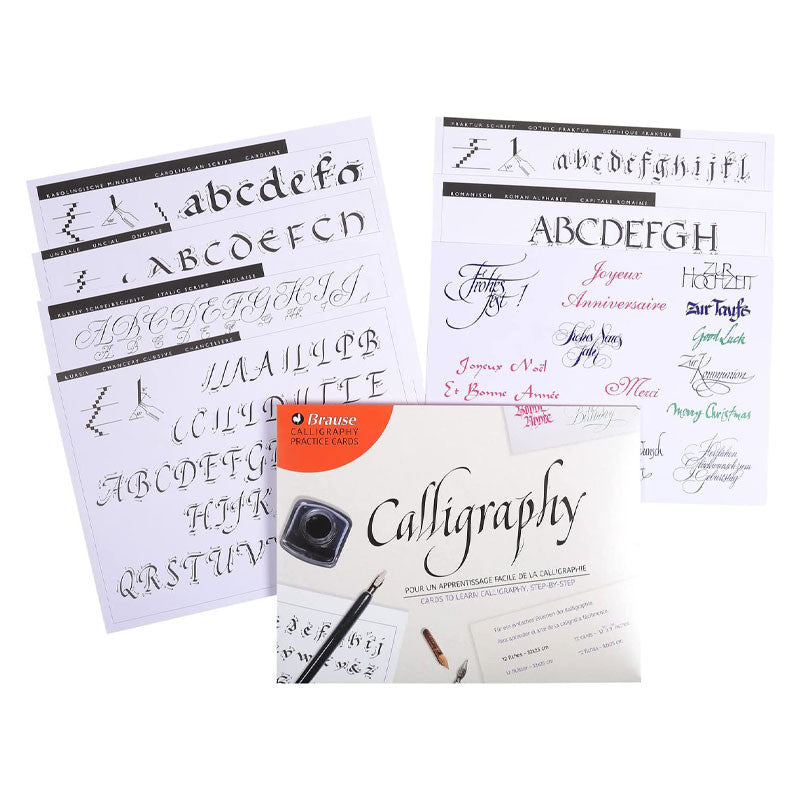 KAROLINGISCHE MINUSKEL CAROLINGIAN SCRIPT CAROLINE
abcdefg
UNZIALE UNCIAL ONCIALE
ABCDEFGH
KURSIV SCHREIBSCHRIFT ITALIC SCRIPT ANGLAISE
ABCDEFGHIJ
KURSIV CHANCERY CURSIVE CHANCELIÈRE
ABCDEFG
HIJK
QRSTUV
FRAKTUR SCHRIFT GOTHIC FRAKTUR GOTHIQUE FRAKTUR
abcdefghijkl
ROMANISCH ROMAN ALPHABET CAPITALE ROMAINE
ABCDEFGH
Frohes
fest !
Joyeux
Anniversaire
ZUR
HOCHZEIT
Zur Taufe
Frohes Neues
Jahr
Good Luck
Joyeux Noël
Et Bonne Année
Merci
Zur
Kommunion
Merry Christmas
Bonne
Route
Birthday
Herzlichen
Glückwunsch zum
Geburtstag
Brause
CALLIGRAPHY
PRACTICE CARDS
Calligraphy
POUR UN APPRENTISSAGE FACILE DE LA CALLIGRAPHIE
CARDS TO LEARN CALLIGRAPHY, STEP-BY-STEP
Für ein einfaches Erlernen der Kalligraphie.
Para aprender el arte de la caligrafía fácilmente.
12 fiches -
12 cards -